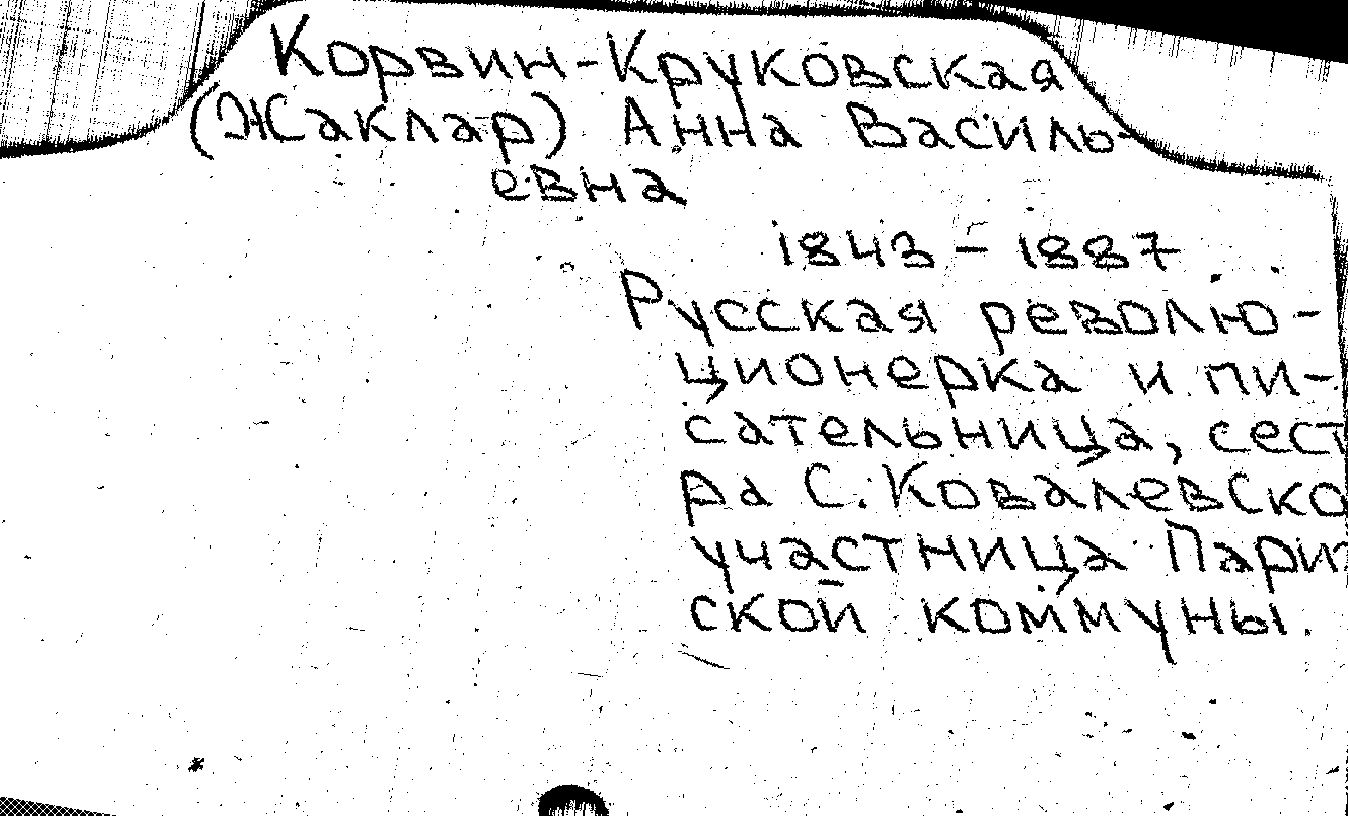 Корвин-Круковская
(Жаклар) Анна Василь-
евна
1843 - 1887
Русская револю-
ционерка и пи-
сательница, сест
ра С. Ковалевско
участница Париж
ской коммуны.